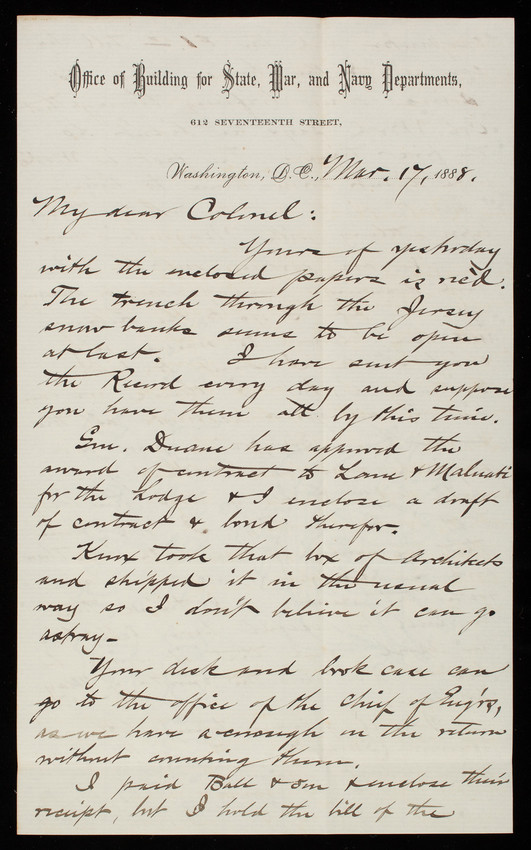 Office of Building for State, War, and Navy Departments,
612 SEVENTEENTH STREET,
Washington, D.C., Mar. 17, 1888.
My dear Colonel:
Yours of yesterday
with the enclosed papers is rec'd.
The trench through the Jersey
snow banks seems to be open
at last. I have sent you
the Record every day and suppose
you have them all by this time.
Gen. Duane has approved the
award of contract to Lane & Malnati
for the Lodge & I enclose a draft
of contract & bond therefor.
Knox took that box of Architects
and shipped it in the usual
way so I don't believe it can go
astray-
Your desk and book case can
go to the office of the Chief of Eng'rs,
as we have enough in the return
without counting them.
I paid Ball & Son & enclose their
receipt, but I hold the bill of the